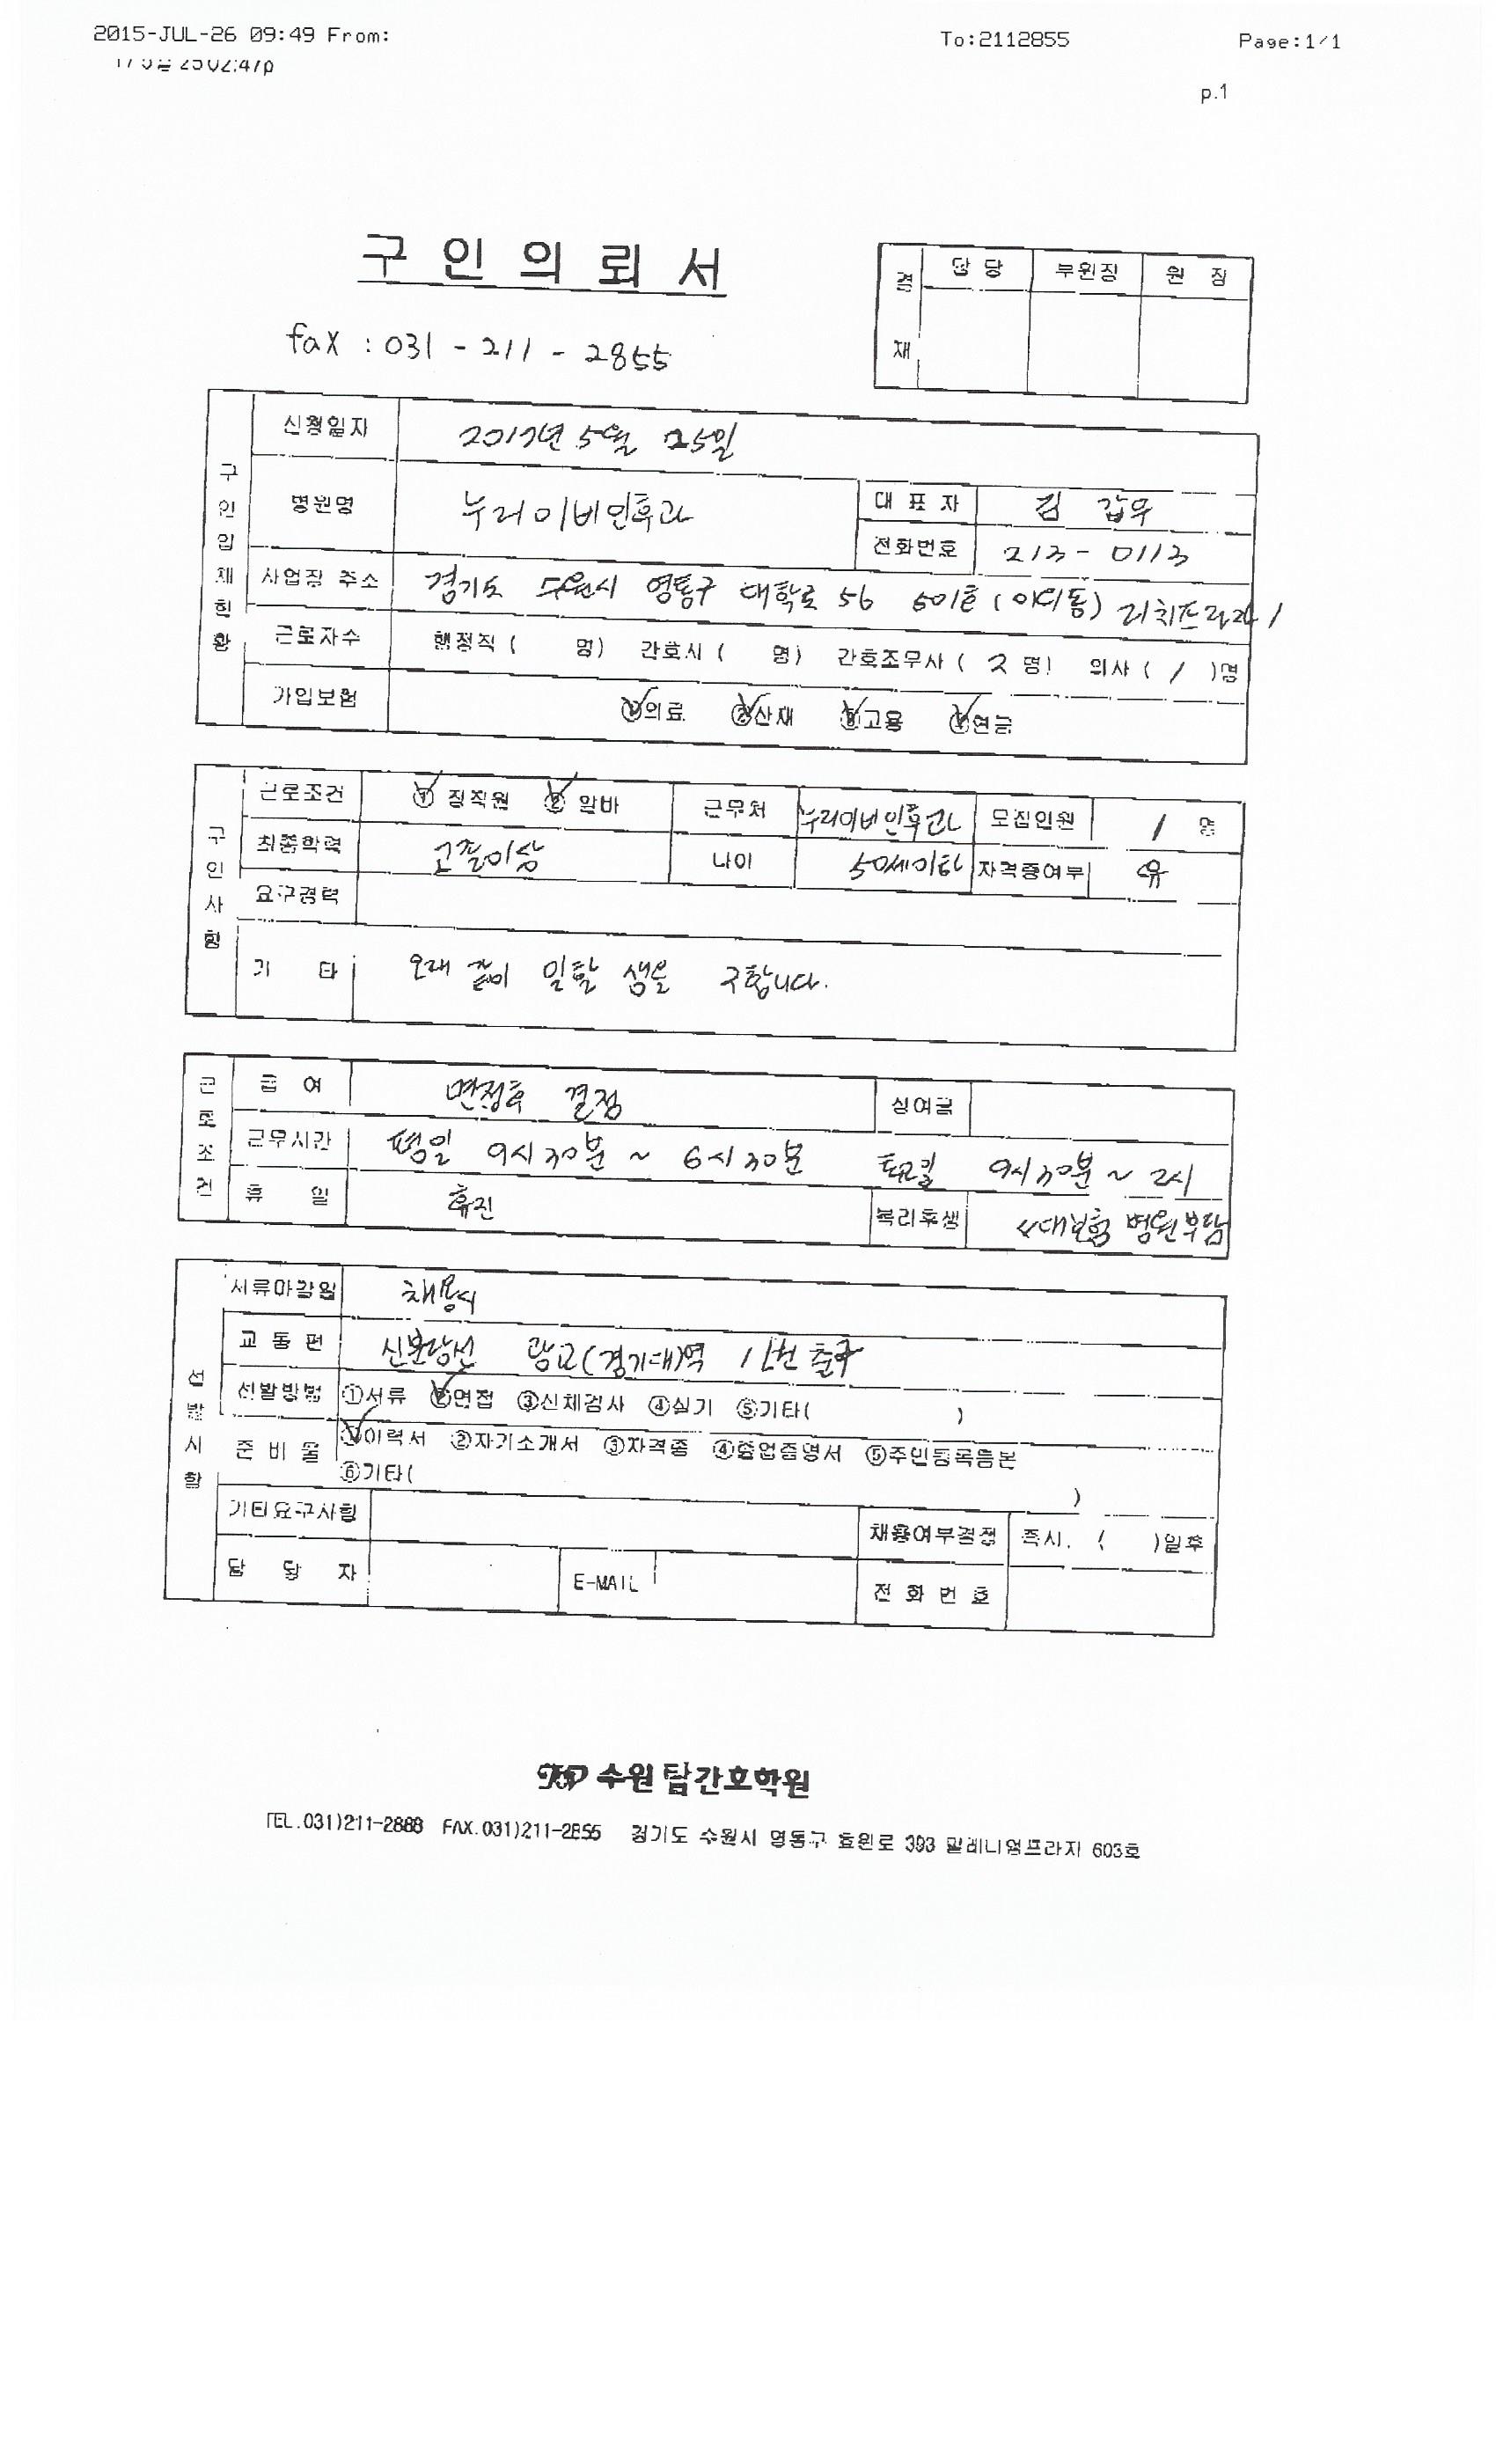 2015-JUL-26 09:49 From: To:2112855 Page:1/1
p.1
구 인 의 뢰 서
결 재 담 당 부원장 원 장
fax : 031 - 211 - 2855
구인업체현황
신청일자 2017년 5월 25일
병원명 누리이비인후과 대 표 자 김 갑우
전화번호 213-0113
사업장 주소 경기도 수원시 영통구 대학로 56 501호 (이의동) 리치프라자 1
근로자수 행정직 ( 명) 간호사 ( 명) 간호조무사 ( 2 명) 의사 ( 1 )명
가입보험 ①의료 ②산재 ③고용 ④연금
구인사항
근로조건 ① 정직원 ② 알바 근무처 누리이비인후과 모집인원 1 명
최종학력 고졸이상 나이 50세이하 자격증여부 유
요구경력
기 타 오래 같이 일할 생을 구합니다.
근로조건
급 여 면접후 결정 상여금
근무시간 평일 9시30분 ~ 6시30분 토요일 9시30분 ~ 2시
휴 일 휴진 복리후생 4대보험 병원부담
선발사항
서류마감일 채용시
교 통 편 신분당선 광교(경기대)역 1번 출구
선발방법 ①서류 ②면접 ③신체검사 ④실기 ⑤기타( )
준 비 물 ①이력서 ②자기소개서 ③자격증 ④졸업증명서 ⑤주민등록등본
⑥기타( )
기타요구사항 채용여부결정 즉시. ( )일후
담 당 자 E-MAIL 전 화 번 호
TOP 수원 탑간호학원
TEL.031)211-2888 FAX.031)211-2855 경기도 수원시 영통구 효원로 393 밀레니엄프라자 603호